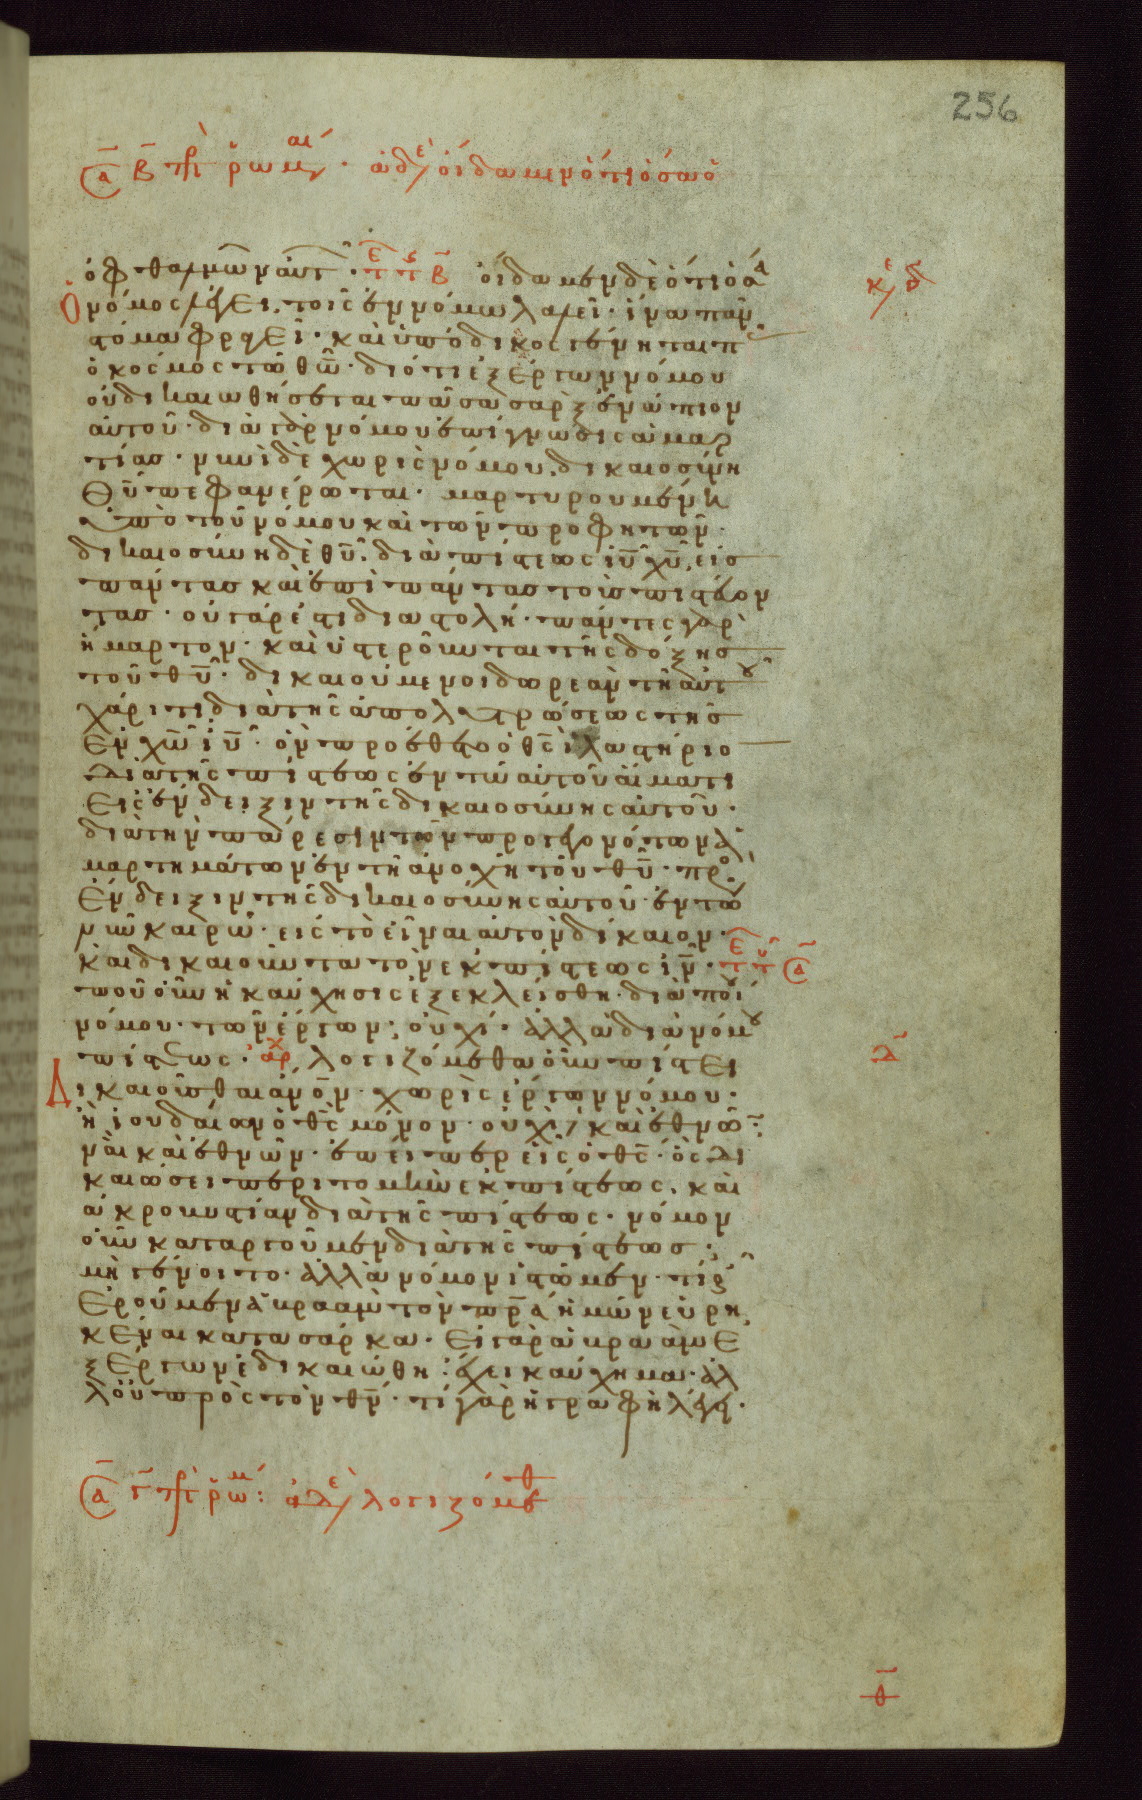 256
α β πρ ρωμαι · αδε οιδαμεν ὅτι ὁσα ὁ
ὀφθαλμῶν αὐτ · οἴδαμεν δὲ ὅτι ὅσα
κε δ
νόμος λέγει, τοῖς ἐν νόμω λαλεῖ · ἵνα πᾶν
στόμα φραγεῖ · καὶ ὑπόδικος γένηται π
ὁ κοσμος τῶ θῶ · διότι ἐξ ἔργων νόμου
οὐ δικαιωθήσεται πᾶσα σαρξ ἐνώπιον
αὐτοῦ · διὰ γὰρ νόμου ἐπίγνωσις ἁμαρ
τίας · νυνὶ δὲ χωρὶς νόμου, δικαιοσύνη
θυ πεφανέρωται · μαρτυρουμένη
ὑπὸ τοῦ νόμου καὶ τῶν προφητῶν ·
δικαιοσύνη δὲ θυ · διὰ πίστεως ιυ χυ, εἰσ
πάντασ καὶ ἐπὶ πάντασ τοὺσ πιστεύον
τασ · οὐ γάρ ἐστι διαστολή · πάντες γὰρ
ἥμαρτον · καὶ ὑστεροῦνται τῆς δόξησ
τοῦ θυ · δικαιούμενοι δωρεὰν τῆ αὐτοῦ
χάριτι διὰ τῆς ἀπολυτρώσεως τῆσ
ἐν χω ιυ · ὃν προέθετο ὁ θς ἱλαστήριο
διὰ τῆς πίστεως ἐν τῶ αὐτοῦ αἵματι
εἰς ἔνδειξιν τῆς δικαιοσύνης αὐτοῦ ·
διὰ τὴν πάρεσιν τῶν προγεγονότων ἁ
μαρτημάτων ἐν τῆ ἀνοχῆ τοῦ θυ · πρὸς
ἔνδειξιν τῆς δικαιοσύνης αὐτοῦ ἐν τῶ
νῦν καιρῶ · εἰς τὸ εἶναι αὐτὸν δίκαιον ·
καὶ δικαιοῦντα τὸν ἐκ πίστεως ιυ ·
ποῦ οὖν ἡ καύχησις ἐξεκλείσθη · διὰ ποίου
νόμου · τῶν ἔργων, οὐχί · ἀλλὰ διὰ νόμου
πίστεως · λογιζόμεθα οὖν πίστει
δικαιοῦσθαι ἀνον · χωρὶς ἔργων νόμου ·
ἢ ἰουδαίων ὁ θς μόνον · οὐχὶ καὶ ἐθνῶν
ναὶ καὶ ἐθνῶν · ἐπείπερ εἷς ὁ θς · ὃς δι
καιώσει περιτομὴν ἐκ πίστεως, καὶ
ἀκροβυστίαν διὰ τῆς πίστεως · νόμον
οὖν καταργοῦμεν διὰ τῆς πίστεωσ ·
μὴ γένοιτο · ἀλλὰ νόμον ἱστῶμεν · τί οὖν
ἐροῦμεν ἀβρααμ τὸν πρα ἡμῶν εὑρη
κέναι κατα σάρκα · εἰ γὰρ ἀβρααμ ἐ
ξ ἔργων ἐδικαιώθη · ἔχει καύχημα · ἀλ
λ οὐ πρὸς τὸν θν · τί γὰρ ἡ γραφὴ λέγει ·
α γ πρ ρωμ : αδε λογιζόμεθ
θ